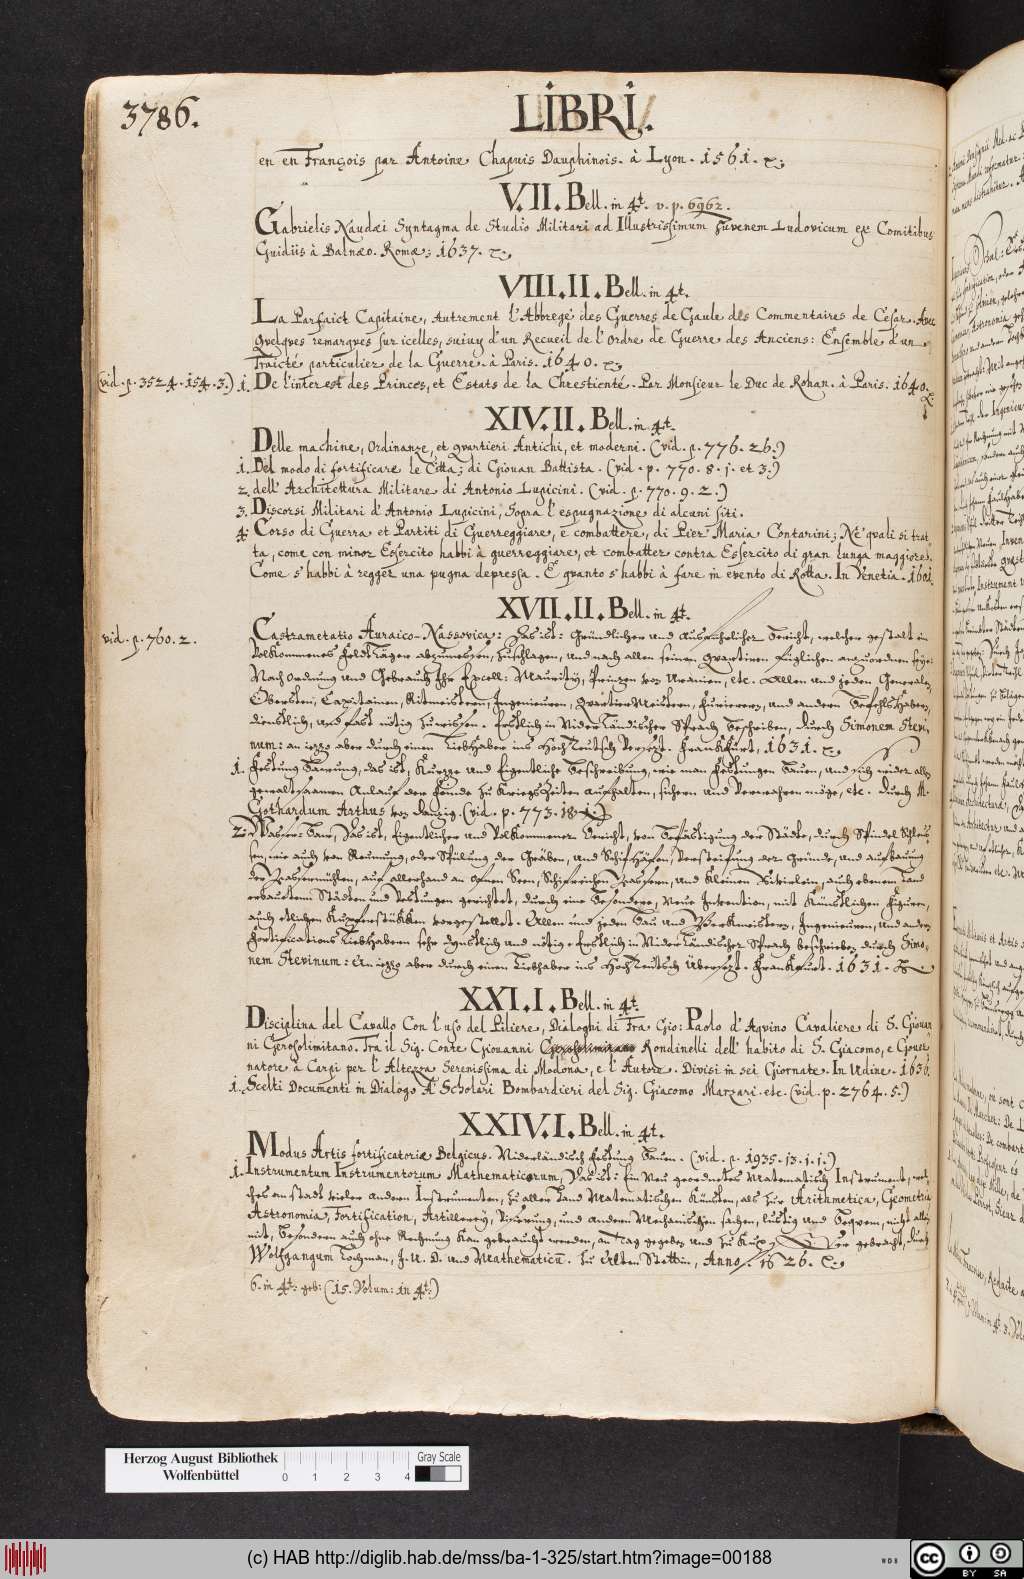 3786.
LIBRI.
en en François par Antoine Chapuis Dauphinois. à Lyon. 1561.
V.II. Bell. in 4t. v. p. 6962.
Gabrielis Naudæi Syntagma de Studio Militari ad Illustrissimum Juvenem Ludovicum ex Comitibus
Guidiis à Balneo. Romæ; 1637.
VIII.II. Bell. in 4t.
La Parfaict Capitaine, Autrement l'Abbregé des Guerres de Gaule des Commentaires de César. Avec
Quelques remarques sur icelles, suivy d'un Recueil de l'Ordre de Guerre des Anciens: Ensemble d'un
Traicté particulier de la Guerre. à Paris. 1640.
(vid. p. 3524. 154. 3.) 1. De l'interest des Princes, et Estats de la Chrestienté. Par Monsieur le Duc de Rohan. à Paris. 1640.
XIV.II. Bell. in 4t.
Delle machine, Ordinanze, et quartieri Antichi, et moderni. (vid. p. 776. 26.)
1. Del modo di fortificare le Citta; di Giouan Battista. (vid. p. 770. 8. 1. et 3.)
2. dell' Architettura Militare di Antonio Lupicini. (vid. p. 770. 9. 2.)
3. Discorsi Militari d'Antonio Lupicini, Sopra l'espugnazione di alcuni siti.
4. Corso di Guerra et Partiti di Guerreggiare, e combattere, di Pier Maria Contarini; Ne' quali si trat
ta, come con minor Essercito habbi à guerreggiare, et combatter contra Essercito di gran lunga maggiore.
Come s'habbi à regger una pugna depressa. E quanto s'habbi à fare in evento di Rotta. In Venetia. 1601
XVII.II. Bell. in 4t.
vid. p. 760. 2.
Castrametatio Auraico-Nassovica: Das ist: Gründlicher und Ausführlicher bericht, welcher gestalt ein
Volkommenes Feldt Läger abzumessen, zuschlagen, und nach allen seinen Quartiren füglichen anzuordnen seye.
Nach Ordnung und Gebrauch Ihr Excell: Maurity, Prinzen von Uranien, etc. Allen und jeden Generalen,
Obersten, Capitainen, Ritmeistern, Ingenieuren, Quartier Meistern, Furierern, und andern Befehls Habern,
dienstlich, und fast nötig zu wissen. Erstlich in Nider Ländischer Sprach beschrieben, durch Simonem Stevi,
num: an iezo aber durch einen Liebhaber ins Hoch Teutsch Versezt. Franckfurt, 1631.
1. Festung Bawung, das ist, Kurze und Eigentliche Beschreibung, wie man Festungen Bauen, und sich wider alle
gewaltsamen Anlauf der Feinde zu Kriegs Zeiten aufhalten, sichern und Verwahren möge, etc. durch M.
Gothardum Arthus von Danzig. (vid. p. 773. 18.1.)
2. Wasser-Baw, Das ist, Eigentlicher und Volkommener Bericht, von Befästigung der Städte, durch Spindel Schleus,
sen, wie auch von Räumung, oder Spülung der Gräben, und Schif Häfen, Versteifung der Gründe, und aufbauung
der Wassermühlen, auf allerhand an offnen Seen, Schifreichen Wassern, und kleinen Rivirlein, auch ebenem Land
erbauttenn Städten und Vestungen gerichtet, durch eine besondere, Neue Invention, mit Künstlichen Figuren,
auch etlichen Kupferstükken vorgestellet. Allen und jeden Bau und Werkmeistern, Ingenieuren, und andern
Fortifications Liebhabern sehr dienstlich und nötig. Erstlich in Nider Ländischer Sprach beschrieben durch Simo,
nem Stevinum: An iezo aber durch einen Liebhaber ins Hoch Teutsch Übersezt. Franckfurt. 1631.
XXI.I. Bell. in 4t.
Disciplina del Cavallo Con l'uso del Piliere, Dialoghi di Fra Gio: Paolo d'Aquino Cavaliere di S. Giovan
ni Gerosolimitano. Tra il Sig. Conte Giovanni Rondinelli dell' habito di S. Giacomo, e Gover
natore à Carpi per l'Altezza Serenissima di Modona, e l'Autore. Divisi in sei Giornate. In Udine. 1636.
1. Scelti Documenti in Dialogo A' Scholari Bombardieri del Sig. Giacomo Marzari. etc. (vid. p. 2764. 5.)
XXIV.I. Bell. in 4t.
Modus Artis fortificatoriæ Belgicus. Niderländisch Festung Bauen. (vid. p. 1935. 13. 1. 1.)
1. Instrumentum Instrumentorum Mathematicorum, Das ist: Ein Neu geordnetes Matematisch Instrument, wel
ches an stadt vieler anderen Instrumenten, zu aller Land Matematischen Künsten, als zur Arithmetica, Geometria
Astronomia, Fortification, Artillerey, Visirung, und andern Mechanischen sachen, lustig und bequem, nicht allein
mit, besondern auch ohne Rechnung kan gebraucht werden, an Tag gegeben und zu Kupffer gebracht, durch
Wolfgangum Lochman, J. U. D. und Mathematicũ. Zu Alten Stettin, Anno. 1626.
6. in 4t. geb: (15. Volum: in 4t.)
Herzog August Bibliothek
Wolfenbüttel
0 1 2 3 4
Gray Scale
(c) HAB http://diglib.hab.de/mss/ba-1-325/start.htm?image=00188
WDB
CC BY SA